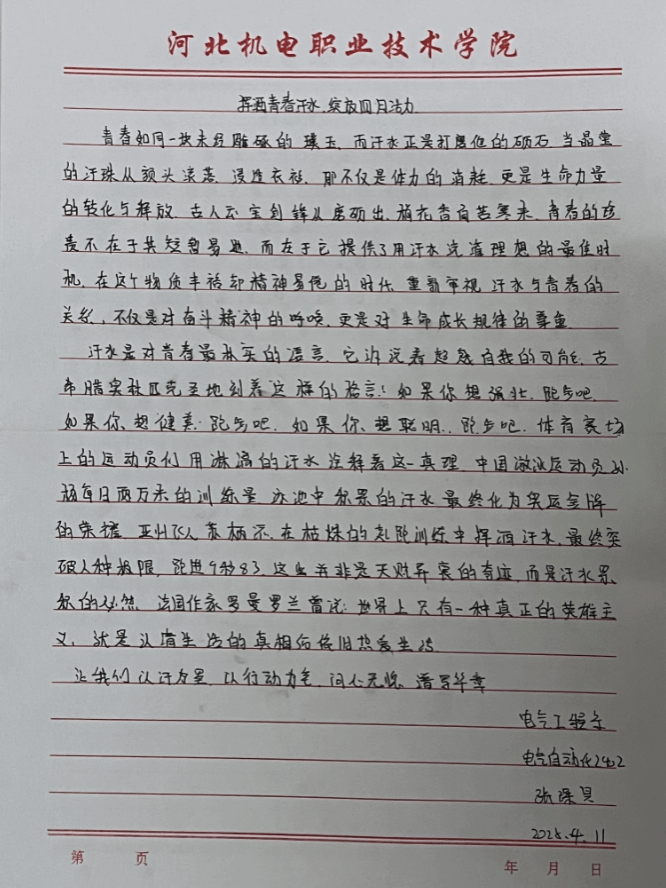 河北机电职业技术学院
挥洒青春汗水,绽放四月活力
青春如同一块未经雕琢的璞玉,而汗水正是打磨他的砺石,当晶莹
的汗珠从额头滚落,浸透衣衫,那不仅是体力的消耗,更是生命力量
的转化与释放,古人云宝剑锋从磨砺出,梅花香自苦寒来,青春的珍
贵不在于其短暂易逝,而在于它提供了用汗水浇灌理想的最佳时
机,在这个物质丰裕却精神易倦的时代,重新审视汗水与青春的
关系,不仅是对奋斗精神的呼唤,更是对生命成长规律的尊重
汗水是对青春最朴实的语言,它诉说着超越自我的可能,古
希腊奥林匹克圣地刻着这样的格言:如果你想强壮,跑步吧,
如果你想健美,跑步吧,如果你想聪明,跑步吧,体育赛场
上的运动员们用淋漓的汗水诠释着这一真理,中国游泳运动员孙
杨每日两万米的训练量,泳池中累累的汗水最终化为奥运金牌
的荣耀,亚洲飞人苏炳添,在枯燥的起跑训练中挥洒汗水,最终突
破人种极限,跑进9秒83,这些并非是天赋异禀的奇迹,而是汗水累
积的必然,法国作家罗曼罗兰曾说:世界上只有一种真正的英雄主
义,就是认清生活的真相后依旧热爱生活
让我们以汗为墨,以行动为笔,问心无愧,谱写华章
电气工程系
电气自动化2402
张
2025.4.11
第 页
年 月 日